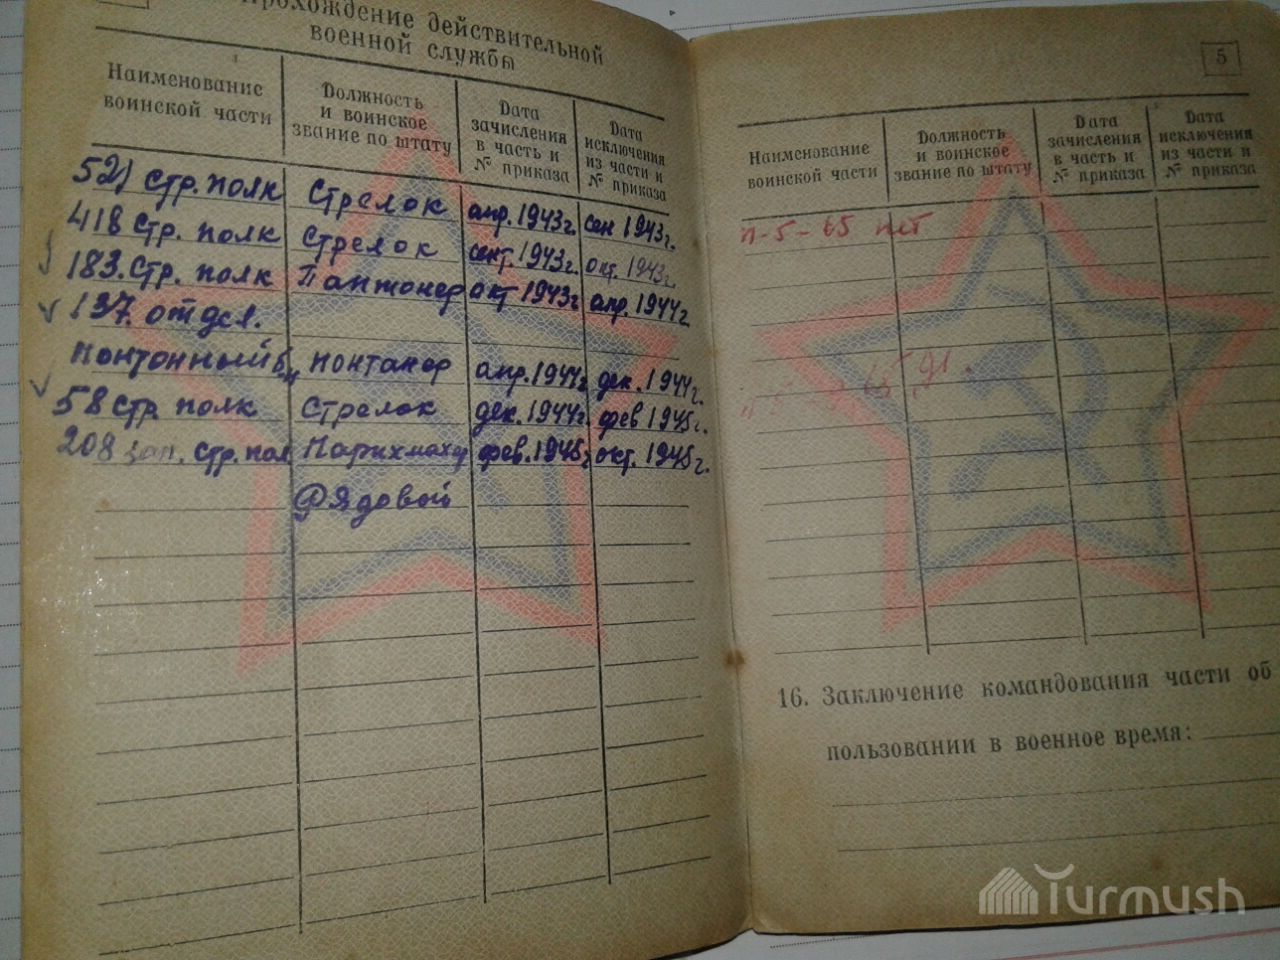 Прохождение действительной
военной службы
Наименование
воинской части
Должность
и воинское
звание по штату
Дата
зачисления
в часть и
№ приказа
Дата
исключения
из части и
№ приказа
521 стр. полк Стрелок апр. 1943г. сен 1943г.
418 стр. полк Стрелок сент. 1943г. окт. 1943г.
183. стр. полк Пантонер окт 1943г апр. 1944г
137. отдел.
понтонный б, понтанер апр. 1944г дек. 1944г.
58 стр полк Стрелок дек. 1944г. фев 1945г.
208 зап. стр. пол Парихмахер фев. 1945г окт. 1945г.
Рядовой
5
Наименование
воинской части
Должность
и воинское
звание по штату
Дата
зачисления
в часть и
№ приказа
Дата
исключения
из части и
№ приказа
п-5-65 лет
65
91.
16. Заключение командования части об
пользовании в военное время:
Turmush